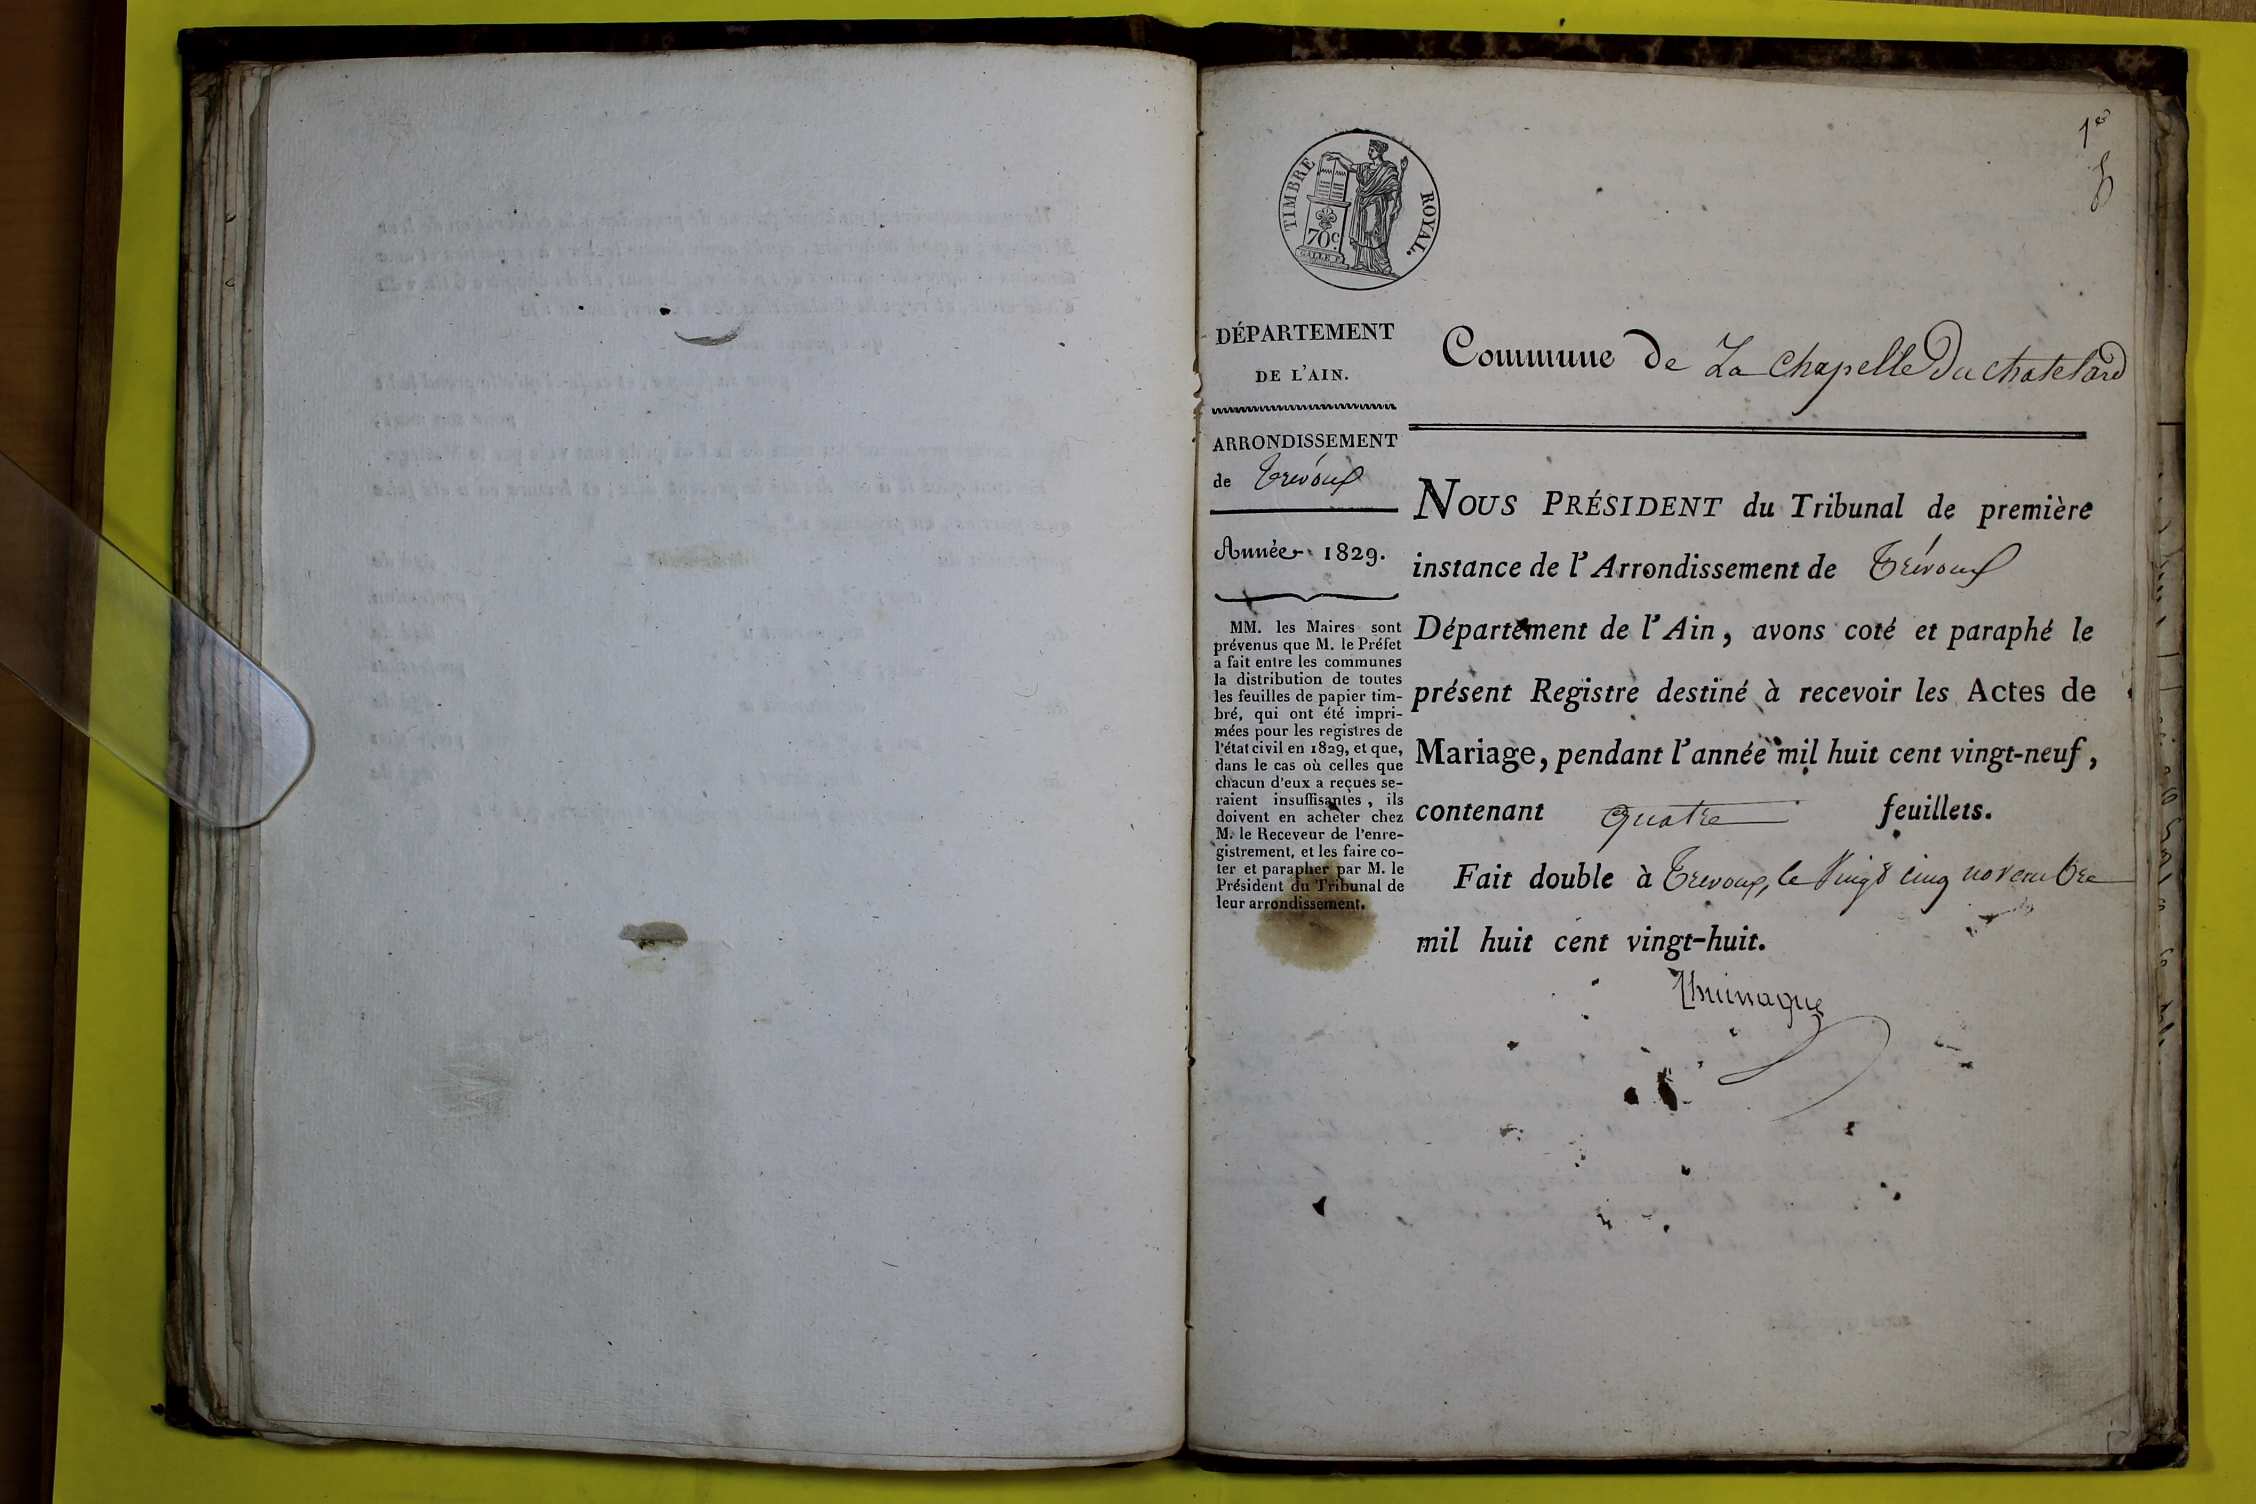 1er
TIMBRE ROYAL.
70c.
DÉPARTEMENT
DE L'AIN.
ARRONDISSEMENT
de Trévoux
Année 1829.
MM. les Maires sont
prévenus que M. le Préfet
a fait entre les communes
la distribution de toutes
les feuilles de papier tim-
bré, qui ont été impri-
mées pour les registres de
l'état civil en 1829, et que,
dans le cas où celles que
chacun d'eux a reçues se-
raient insuffisantes, ils
doivent en acheter chez
M. le Receveur de l'enre-
gistrement, et les faire co-
ter et parapher par M. le
Président du Tribunal de
leur arrondissement.
Commune de La Chapelle Du chatelard
NOUS PRÉSIDENT du Tribunal de première
instance de l'Arrondissement de Trévoux
Département de l'Ain, avons coté et paraphé le
présent Registre destiné à recevoir les Actes de
Mariage, pendant l'année mil huit cent vingt-neuf,
contenant quatre feuillets.
Fait double à Trevoux, le Vingt cinq novembre
mil huit cent vingt-huit.